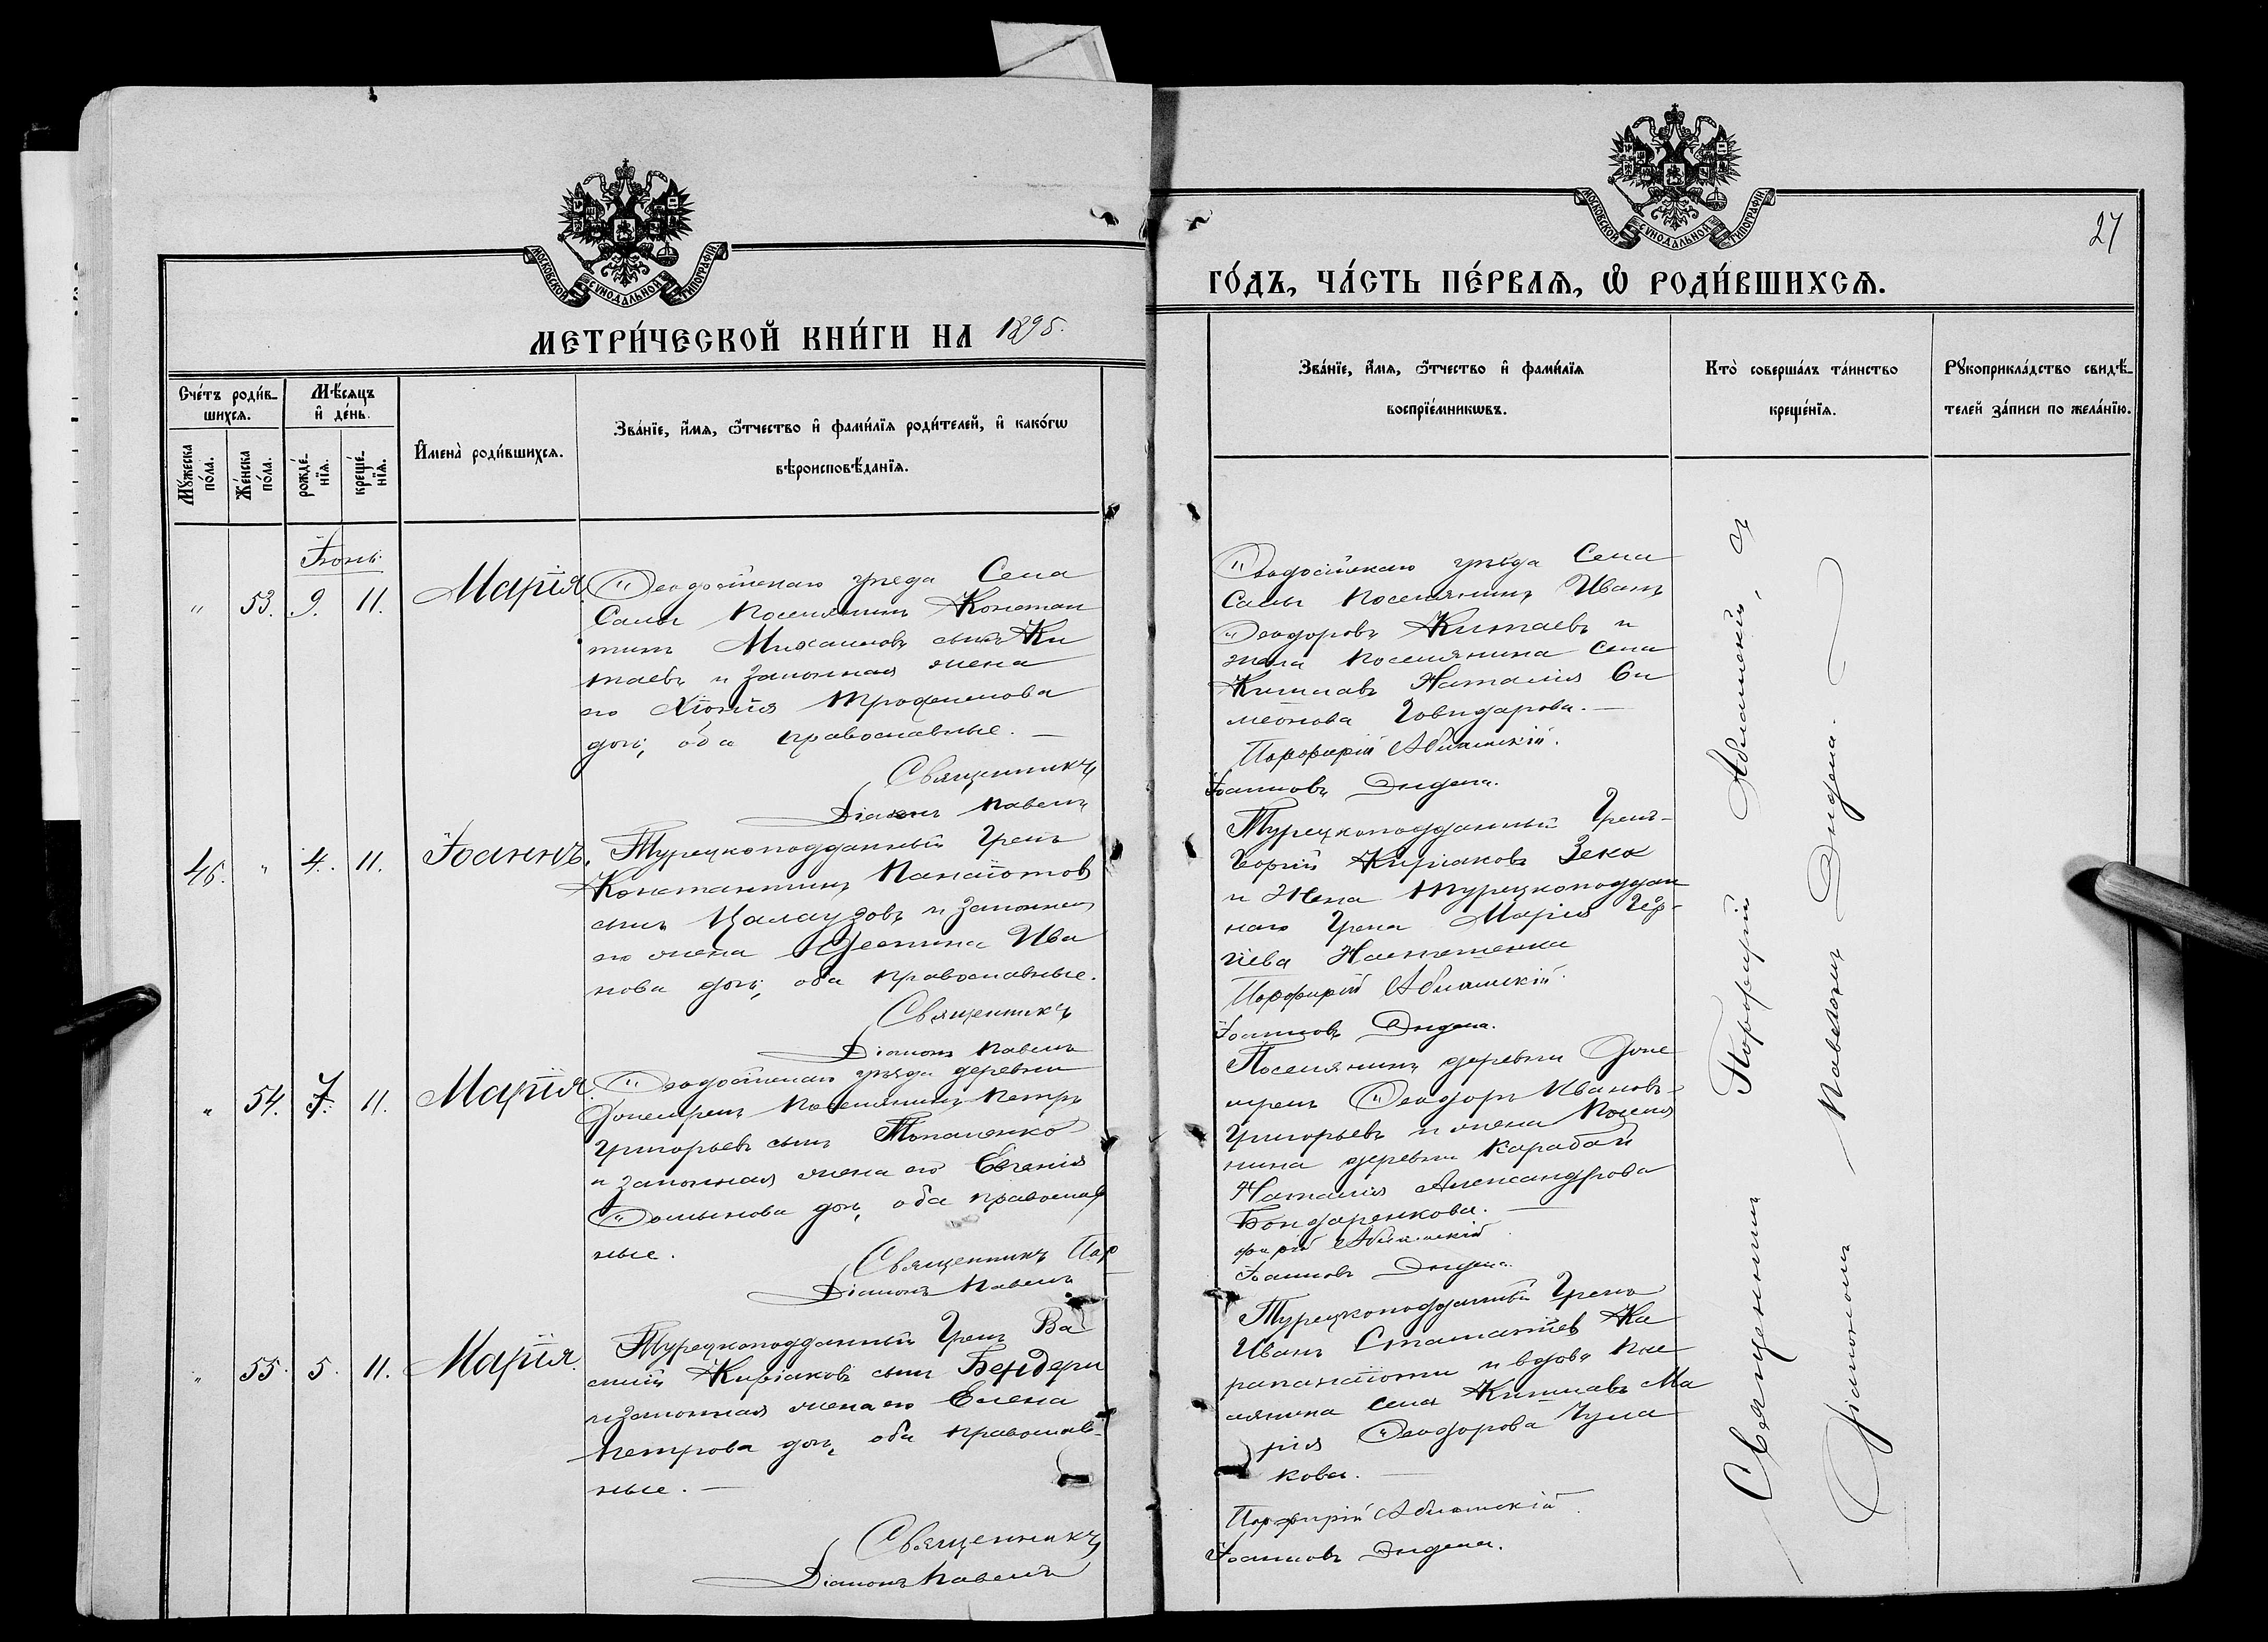 МОСКОВСКОЙ СУНОДАЛЬНОЙ ТИПОГРАФІИ
МЕТРИ́ЧЕСКОЙ КНИ́ГИ НА 1895.
Сче́тъ роди́в-
шихся.
Мꙋ́жеска
по́ла.
Же́нска
по́ла.
Мѣ́сяцъ
и҆ де́нь.
рожде́-
нїя.
креще́-
нїя.
И҆мена̀ роди́вшихся.
Зва́нїе, и҆́мя, ѻ҆́тчество и҆ фами́лїя роди́телей, и҆ како́гѡ
вѣроисповѣ́данїя.
Іюнь
" 53. 9. 11. Марія.
Ѳеодосійскаго уѣзда Села
Салы Поселянинъ Констан
тинъ Михаиловъ сынъ Ки
таевъ и законная жена
его Хіонія Трофимова
дочь, оба православные. —
Священникъ
Діаконъ Павелъ
46. " 4. 11. Іоаннъ.
Турецкоподданный Грекъ
Константинъ Панаіотовъ
сынъ Калаузовъ и законная
его жена Ива
нова дочь, оба православные.
Священникъ
Діаконъ Павелъ
" 54. 7. 11. Марія.
Ѳеодосійскаго уѣзда деревни
Поселянинъ Петръ
Григорьевъ сынъ
и законная жена его Евгенія
дочь, оба православ
ные.
Священникъ Пор
Діаконъ Павелъ
" 55. 5. 11. Марія.
Турецкоподданный Грекъ Ва
силій Киріаковъ сынъ Бендери
и законная жена его Елена
Петрова дочь, оба православ-
ные. —
Священникъ
Діаконъ Павелъ
27
МОСКОВСКОЙ СУНОДАЛЬНОЙ ТИПОГРАФІИ
ГО́ДЪ, ЧА́СТЬ ПЕ́РВАѦ, Ѡ҆ РОДИ́ВШИХСѦ.
Зва́нїе, и҆́мя, ѻ҆́тчество и҆ фами́лїя
воспрїе́мникѡвъ.
Кто̀ соверша́лъ та́инство
креще́нїя.
Рꙋкоприкла́дство свидѣ́-
телей за́писи по жела́нїю.
Ѳеодосійскаго уѣзда Села
Салы Поселянинъ Иванъ
Ѳеодоровъ Китаевъ и
жена поселянина Села
Кишлавъ Наталія Си
меонова Говидарова. —
Порфирій Абламскій.
Іоанновъ Эндека.
Турецкоподданный Грекъ-
Георгій Киріаковъ Зека
и Жена Турецкоподдан
наго Грека Марія Геор-
гіева
Порфирій Абламскій.
Іоанновъ Эндека.
Поселянинъ деревни
Ѳеодоръ Ивановъ-
Григорьевъ и жена Поселя
нина деревни Карабай
Наталія Александрова
Бондаренкова. —
фирій Абламскій
Іоанновъ Эндека.
Турецкоподданный Грекъ
Иванъ Стаматіевъ Ка
рапанаіоти и вдова Посе
лянина села Кишлавъ Ма
рія Ѳеодорова Чула
кова. —
Порфирій Абламскій.
Іоанновъ Эндека.
Священникъ Порфирій Абламскій, съ
Діакономъ Павломъ Эндека.